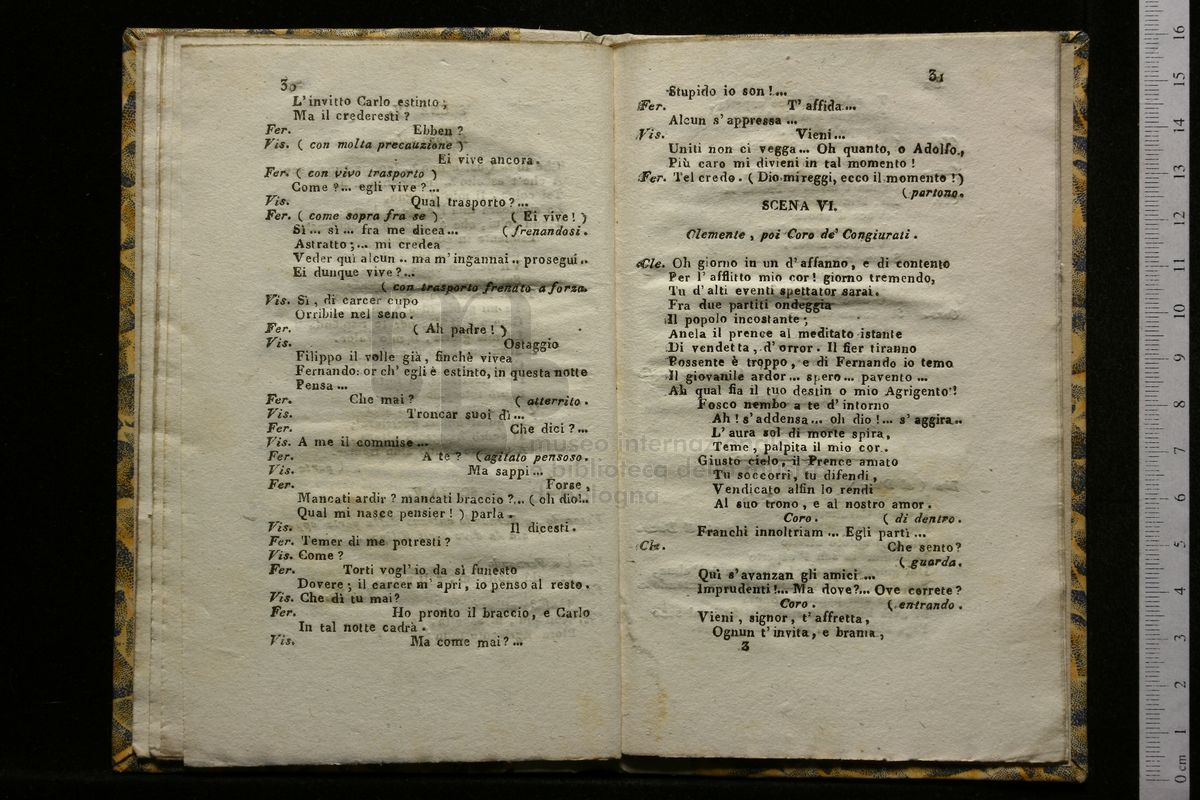 30
L'invitto Carlo estinto;
Ma il crederesti?
Fer. Ebben?
Vis. ( con molta precauzione )
Ei vive ancora.
Fer. ( con vivo trasporto )
Come?... egli vive?...
Vis. Qual trasporto?...
Fer. ( come sopra fra se ) ( Ei vive! )
Sì... sì... fra me dicea... ( frenandosi.
Astratto;... mi credea
Veder quì alcun .. ma m'ingannai .. prosegui ..
Ei dunque vive?...
( con trasporto frenato a forza.
Vis. Sì, di carcer cupo
Orribile nel seno.
Fer. ( Ah padre! )
Vis. Ostaggio
Filippo il volle già, finchè vivea
Fernando: or ch'egli è estinto, in questa notte
Pensa ...
Fer. Che mai? ( atterrito.
Vis. Troncar suoi dì...
Fer. Che dici?...
Vis. A me il commise ...
Fer. A te? ( agitato pensoso.
Vis. Ma sappi ...
Fer. Forse,
Mancati ardir? mancati braccio?... ( oh dio!..
Qual mi nasce pensier! ) parla.
Vis. Il dicesti.
Fer. Temer di me potresti?
Vis. Come?
Fer. Torti vogl'io da sì funesto
Dovere; il carcer m'apri, io penso al resto.
Vis. Che dì tu mai?
Fer. Ho pronto il braccio, e Carlo
In tal notte cadrà.
Vis. Ma come mai?...
31
Stupido io son!...
Fer. T'affida...
Alcun s'appressa ...
Vis. Vieni...
Uniti non ci vegga... Oh quanto, o Adolfo,
Più caro mi divieni in tal momento!
Fer. Tel credo. ( Dio mi reggi, ecco il momento! )
( partono.
SCENA VI.
Clemente, poi Coro de' Congiurati.
Cle. Oh giorno in un d'affanno, e di contento
Per l'afflitto mio cor! giorno tremendo,
Tu d'alti eventi spettator sarai.
Fra due partiti ondeggia
Il popolo incostante;
Anela il prence al meditato istante
Di vendetta, d'orror. Il fier tiranno
Possente è troppo, e di Fernando io temo
Il giovanile ardor... spero... pavento ...
Ah qual fia il tuo destin o mio Agrigento!
Fosco nembo a te d'intorno
Ah! s'addensa... oh dio!... s'aggira..
L'aura sol di morte spira,
Teme, palpita il mio cor.
Giusto cielo, il Prence amato
Tu soccorri, tu difendi,
Vendicato alfin lo rendi
Al suo trono, e al nostro amor.
Coro. ( di dentro.
Franchi innoltriam ... Egli partì ...
Cle. Che sento?
( guarda.
Quì s'avanzan gli amici ...
Imprudenti!... Ma dove?... Ove correte?
Coro. ( entrando.
Vieni, signor, t'affretta,
Ognun t'invita, e brama,
3
museo internaz
biblioteca de
ologna
16
15
14
13
12
11
10
9
8
7
6
5
4
3
2
1
0 cm